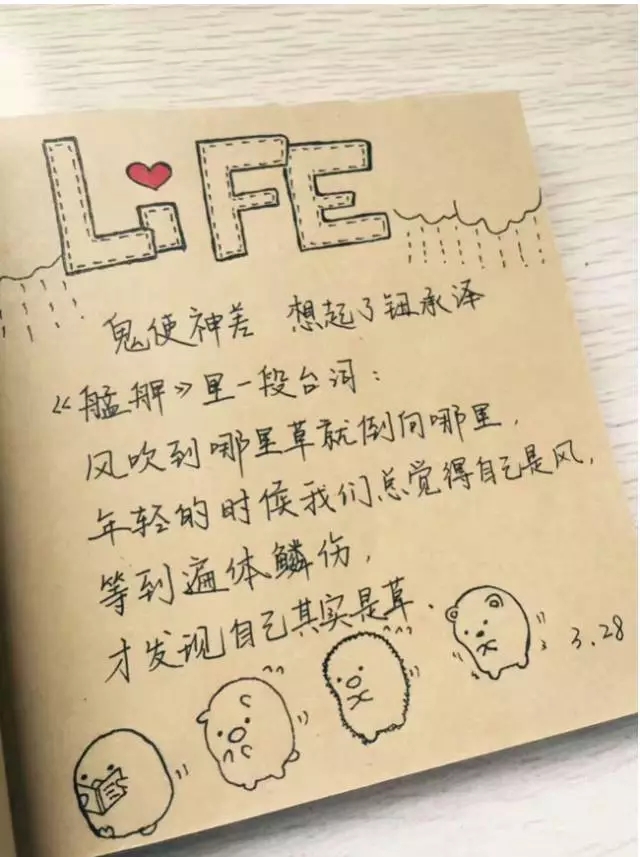 LiFE
鬼使神差 想起了钮承泽
《艋舺》里一段台词：
风吹到哪里草就倒向哪里，
年轻的时候我们总觉得自己是风，
等到遍体鳞伤，
才发现自己其实是草．
3.28